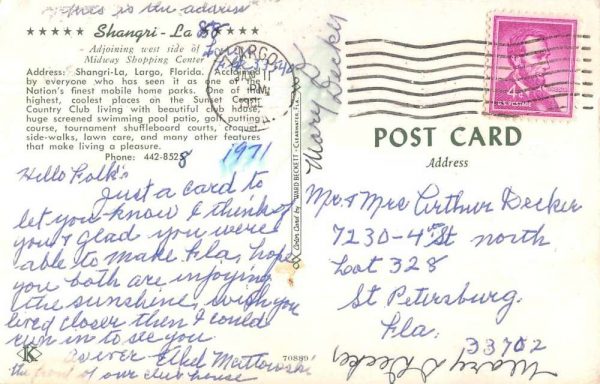 this is the address
★★★★★ Shangri-La ★★★★★
88
Adjoining west side of
Midway Shopping Center
Largo
Fla 33540
Address: Shangri-La, Largo, Florida. Acclaimed
by everyone who has seen it as one of the
Nation's finest mobile home parks. One of the
highest, coolest places on the Sunset Coast.
Country Club living with beautiful club house,
huge screened swimming pool patio, golf putting
course, tournament shuffleboard courts, croquet,
side-walks, lawn care, and many other features
that make living a pleasure.
Phone: 442-8528
1971
Hello Folk's
Just a card to
let you know I think of
you & glad you were
able to make Fla, hope
you both are injoying
the sunshine, wish you
lived closer then I could
run in to see you
as ever Ethel
the front of our club house
K
70889
Color Card by WARD BECKETT - CLEARWATER, FLA.
LARGO
PM
Mary Decker
4¢
U.S. POSTAGE
POST CARD
Address
Mr. & Mrs Arthur Decker
7230-4th St north
Lot 328
St Petersburg.
Fla.
33702
Mary Decker